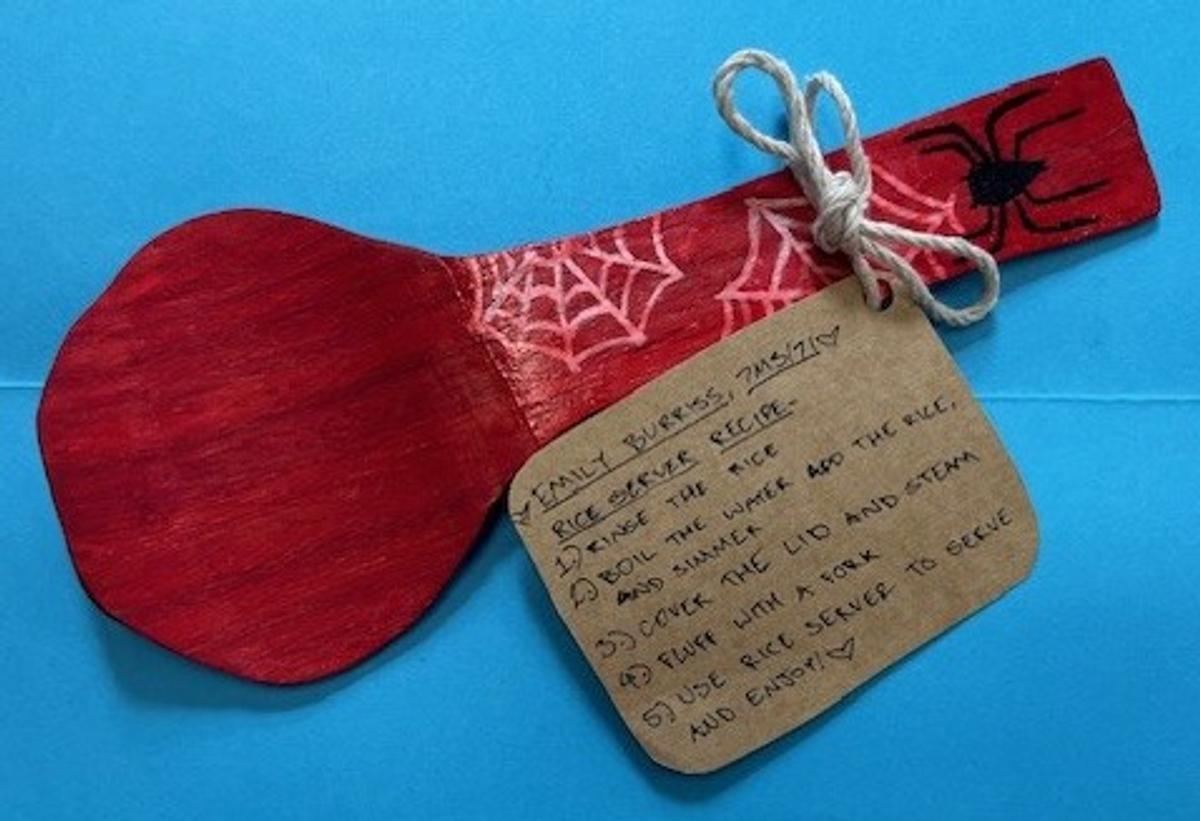 ♡EMILY BURRISS, 7MS/71♡
RICE SERVER RECIPE-
1) RINSE THE RICE
2) BOIL THE WATER ADD THE RICE,
AND SIMMER
3) COVER THE LID AND STEAM
4) FLUFF WITH A FORK
5) USE RICE SERVER TO SERVE
AND ENJOY!♡